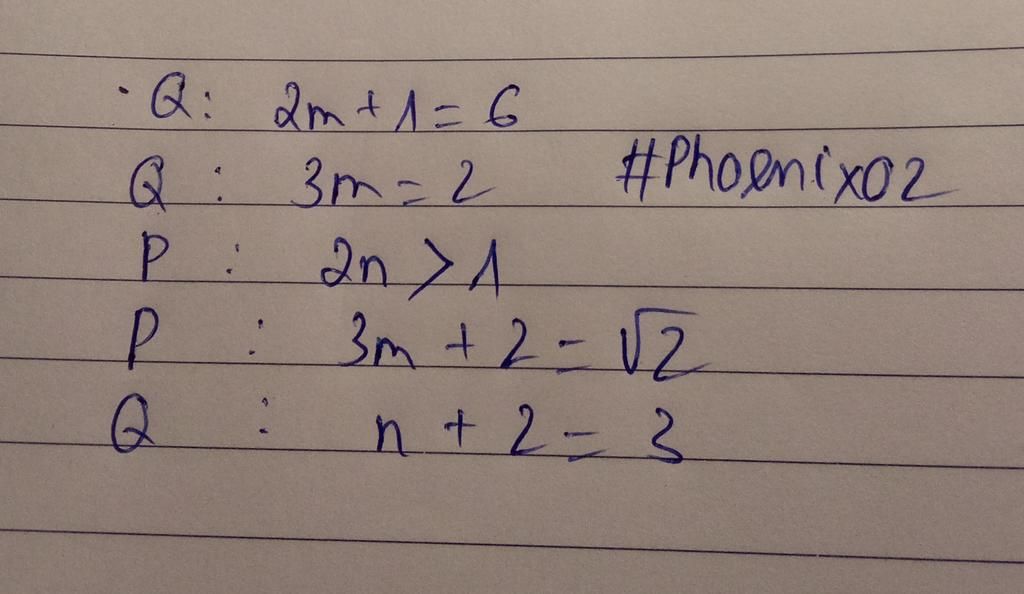 · Q: 2m + 1 = 6
Q : 3m = 2 #Phoenix02
P : 2n > 1
P : 3m + 2 = √2
Q : n + 2 = 3